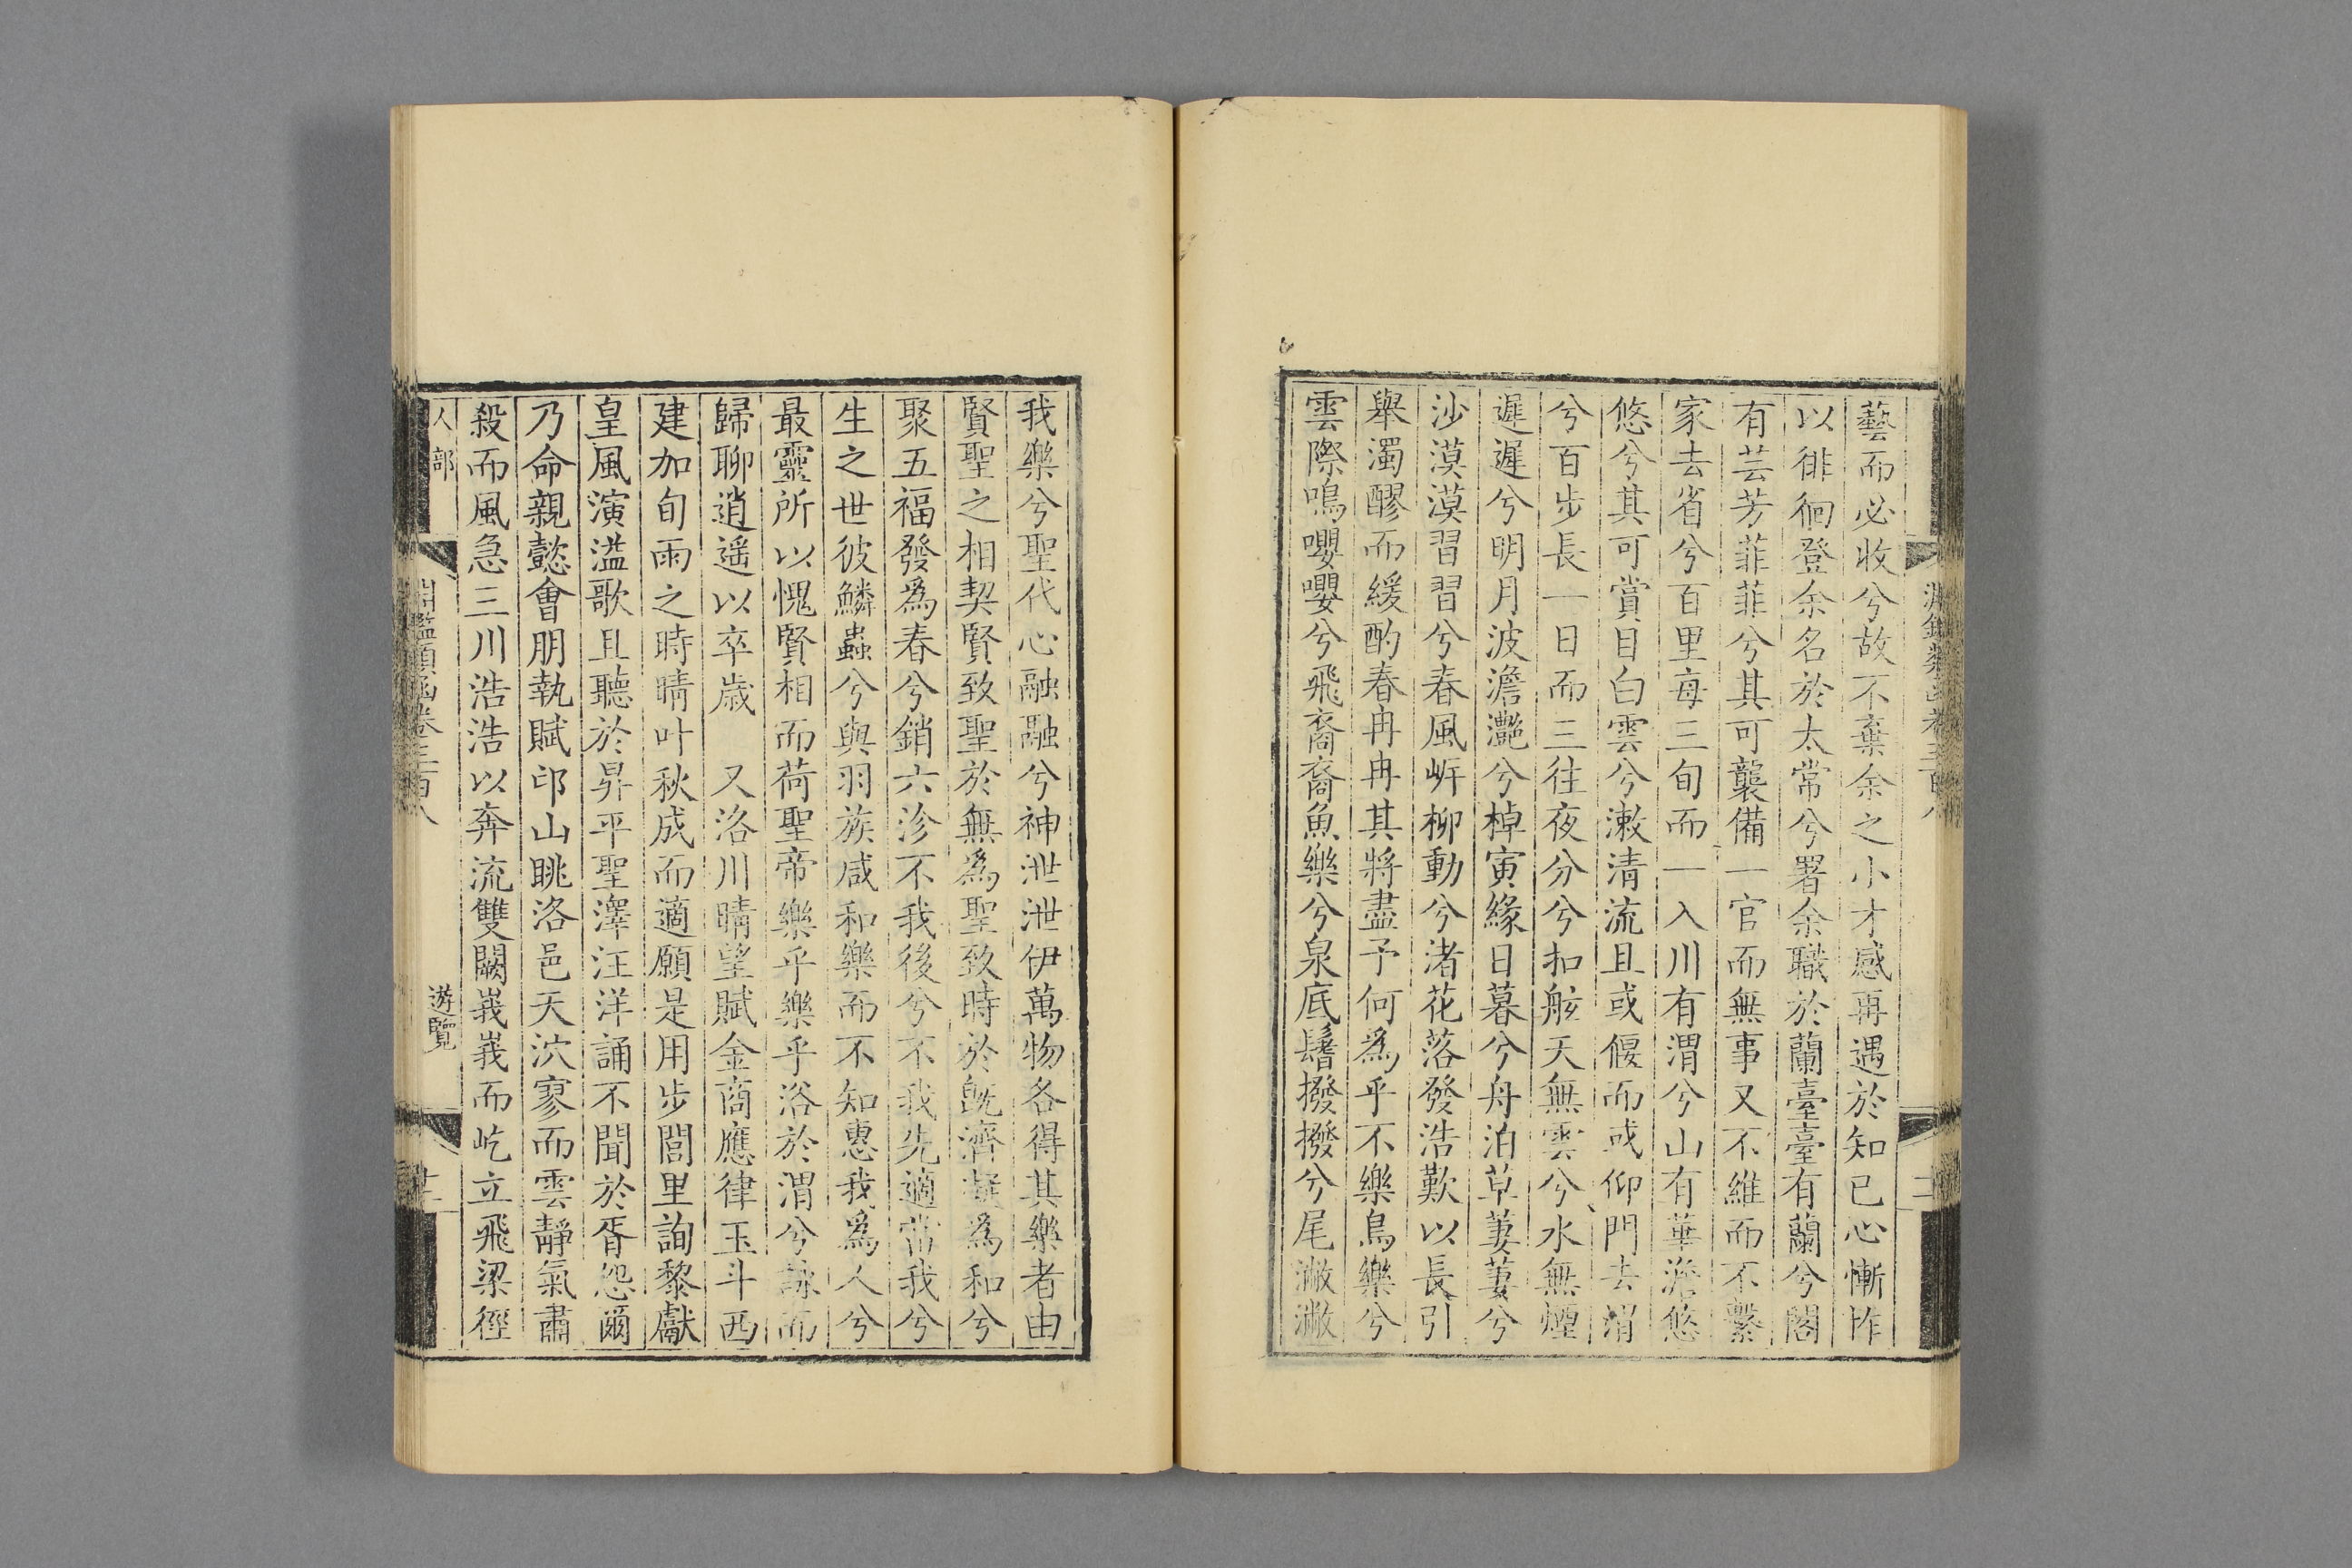 藝而必收兮故不棄余之小才感再遇於知己心慚怍
以徘徊登余名於太常兮署余職於蘭臺臺有蘭兮閣
有芸芳菲菲兮其可襲備一官而無事又不維而不繫
家去省兮百里每三旬而一入川有渭兮山有華澹悠
悠兮其可賞目白雲兮漱清流且或偃而或仰門去渭
兮百步長一日而三往夜分兮扣舷天無雲兮水無煙
遲遲兮明月波澹灔兮棹寅緣日暮兮舟泊草萋萋兮
沙漠漠習習兮春風岍柳動兮渚花落發浩歎以長引
舉濁醪而緩酌春冉冉其將盡予何爲乎不樂鳥樂兮
雲際鳴嚶嚶兮飛裔裔魚樂兮泉底鬐撥撥兮尾潎潎
我樂兮聖代心融融兮神泄泄伊萬物各得其樂者由
賢聖之相契賢致聖於無爲聖致時於旣濟凝爲和兮
聚五福發爲春兮銷六沴不我後兮不我先適當我兮
生之世彼鱗蟲兮與羽族咸和樂而不知惠我爲人兮
最靈所以愧賢相而荷聖帝樂乎樂乎浴於渭兮詠而
歸聊逍遥以卒歲　又洛川晴望賦金商應律玉斗西
建加旬雨之時晴叶秋成而適願是用步閭里詢黎獻
皇風演溢歌且聽於昇平聖澤汪洋誦不聞於胥怨爾
乃命親懿會朋執賦邙山眺洛邑天泬寥而雲靜氣肅
殺而風急三川浩浩以奔流雙闕峩峩而屹立飛梁徑
人部
淵鑑類函卷三百八
遊覽